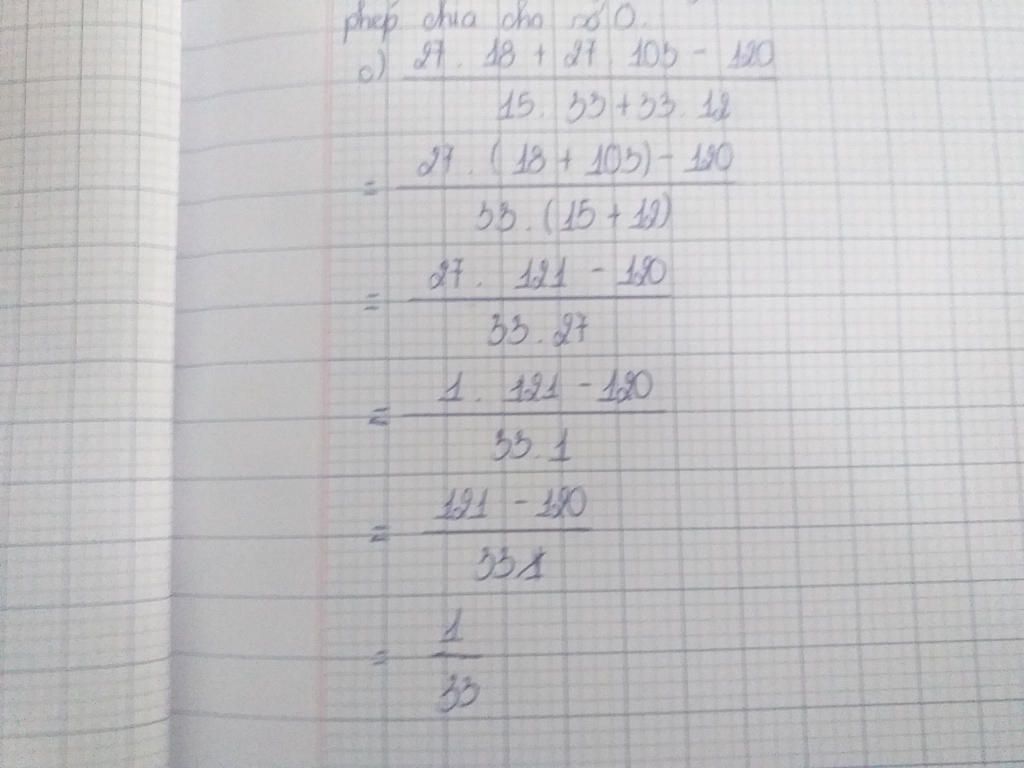 phép chia cho số 0.
c) 27 . 18 + 27 103 - 120
15. 33 + 33. 12
= 27 . ( 18 + 103) - 120
33 . (15 + 12)
= 27 . 121 - 120
33 . 27
= 1 . 121 - 120
33 . 1
= 121 - 120
33 1
= 1
33